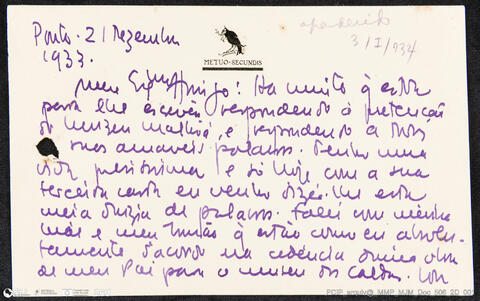 Porto - 21 Dezembro
1933.
METUO-SECUNDIS
3/I/934
Meu Exmo Amigo: Ha muito q estou
para lhe escrever respondendo á pretenção
do Museu Malhoa, e respondendo a
suas amaveis palavras. Tenho uma
vida e só hoje com a sua
terceira carta eu venho dizer-lhe esta
meia duzia de palavras. Falei com minha
mãe e meu Irmão q estão como eu absolu-
tamente d'acordo na cedência duma obra
de meu Pai para o museu das Caldas. Com
PCIP_arquiv@_MMP_MJM_Doc 506 2D 00